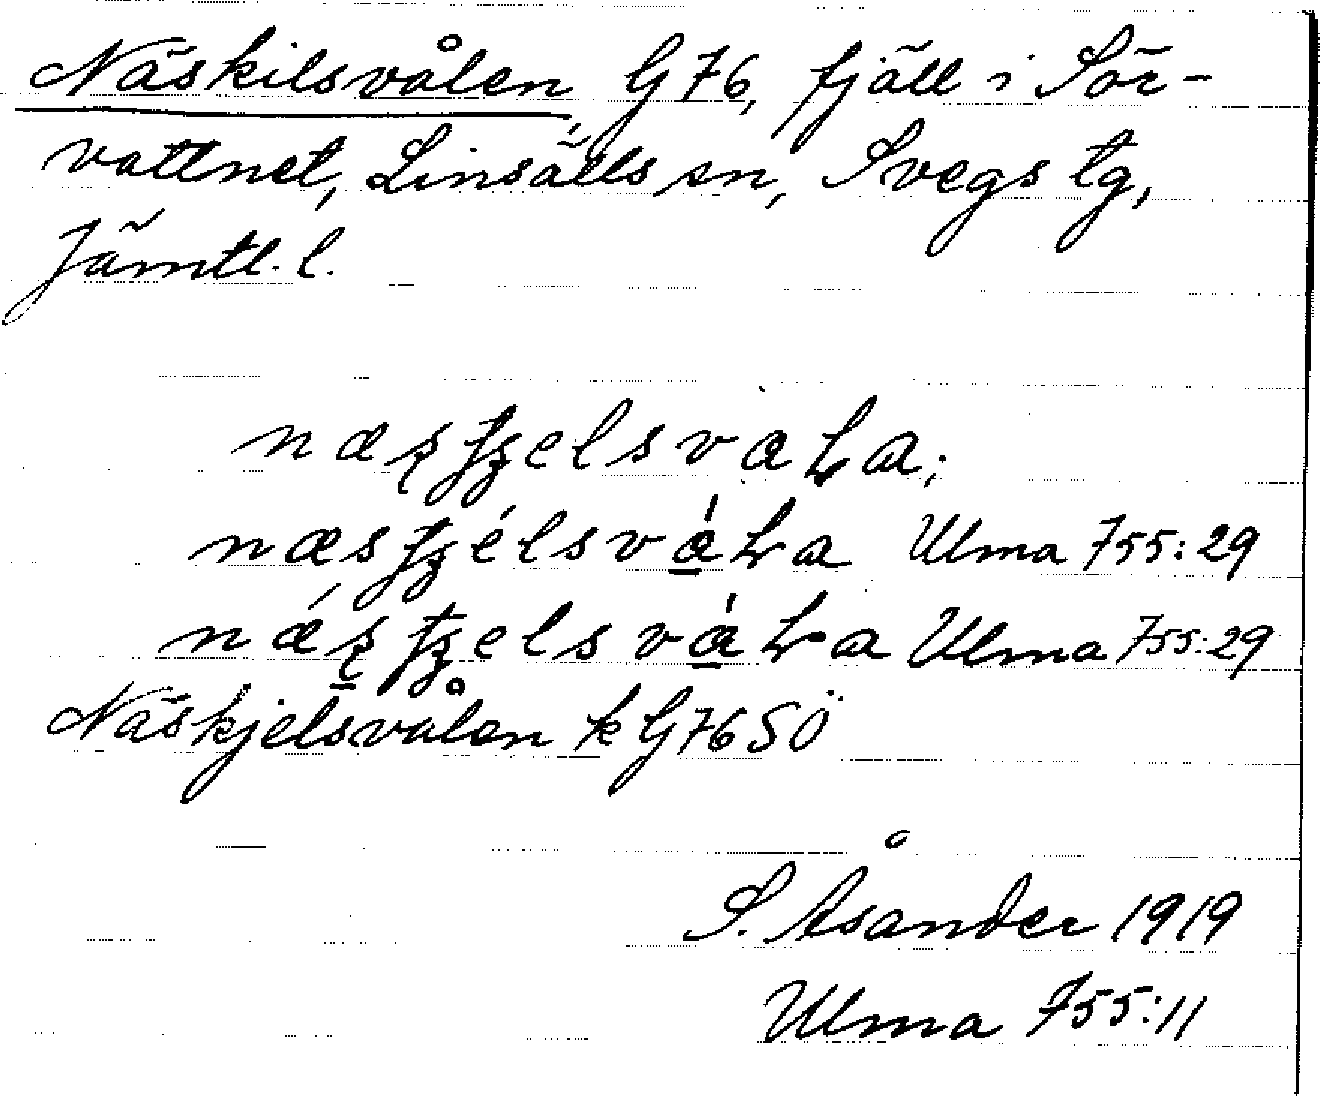 Näskilsvålen, G76, fjäll i Sör-
vattnet, Linsälls sn, Svegs tg,
Jämtl. l.
Ulma 755:29
Ulma 755:29
Näskjelsvålen k G76 SÖ
S. Åsander 1919
Ulma 755:11